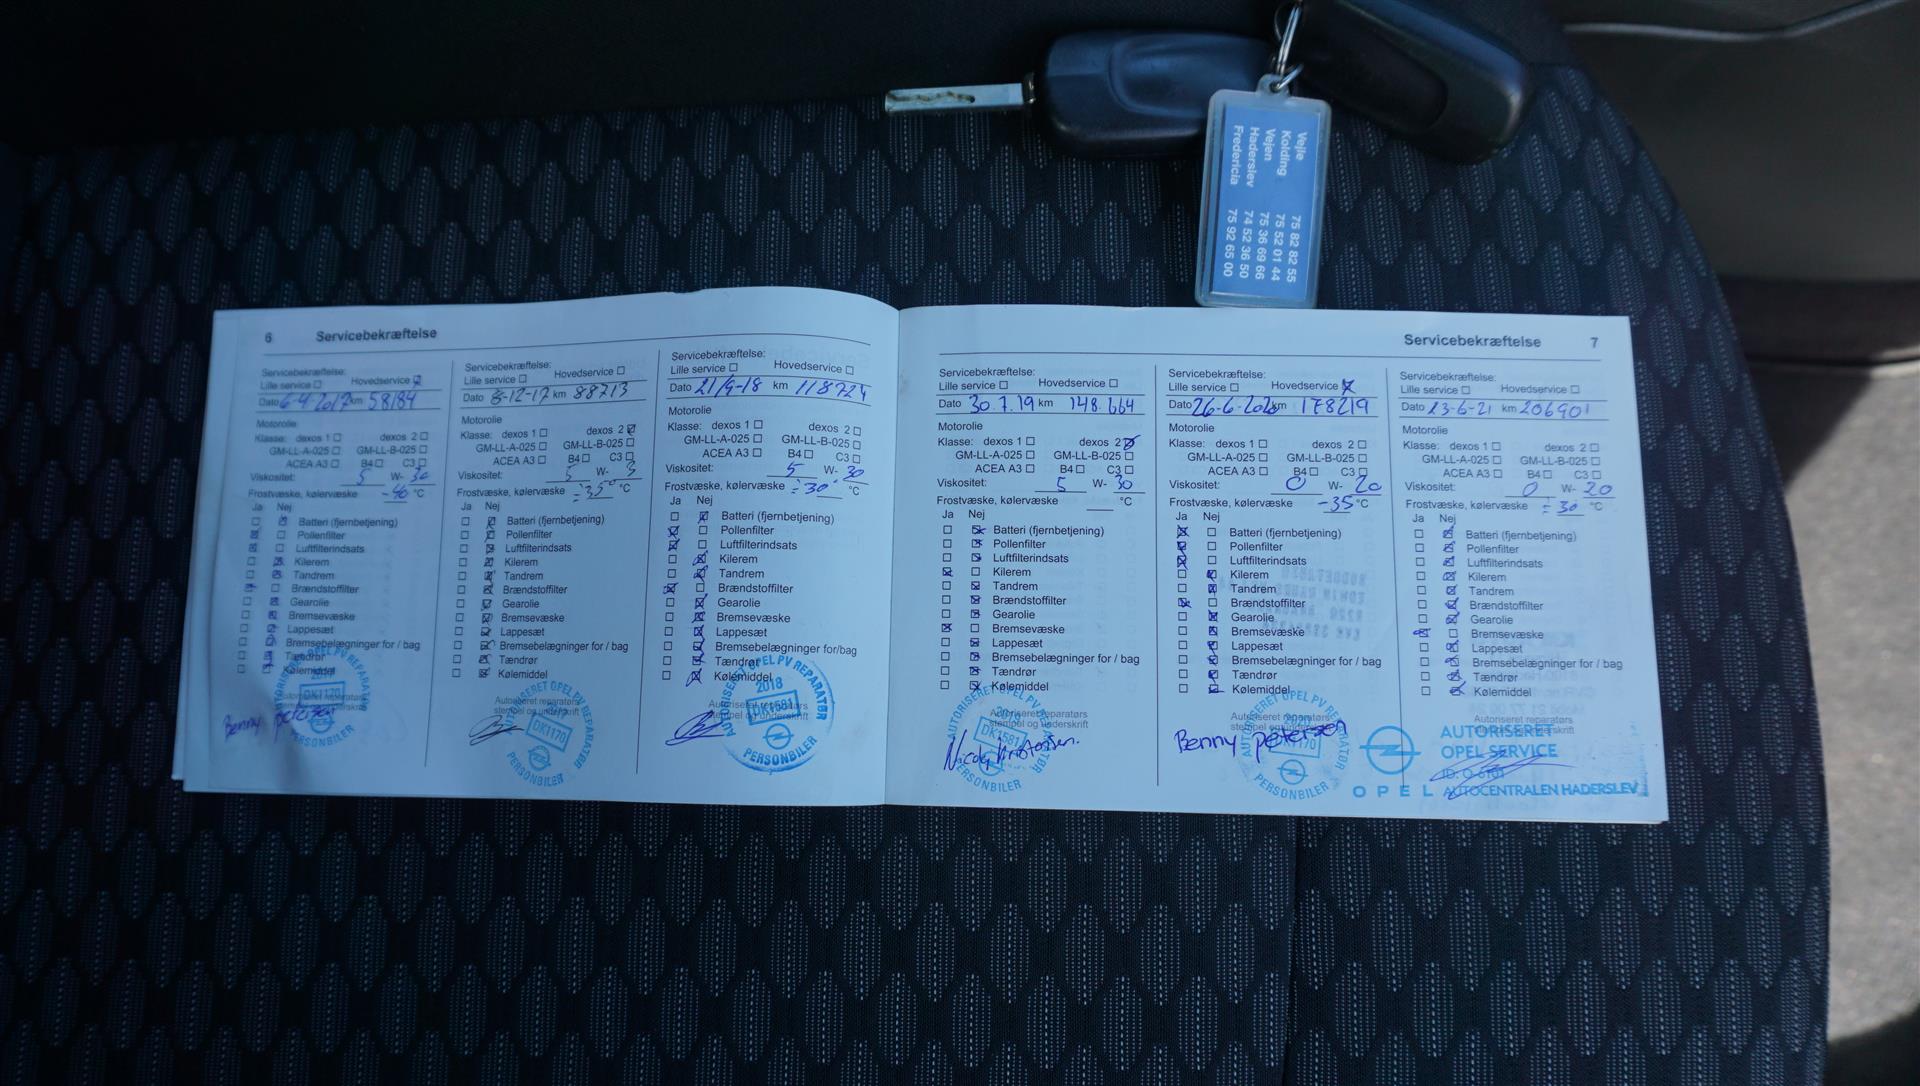 Vejle 75 82 82 55
Kolding 75 52 01 44
Vejen 75 36 69 66
Haderslev 74 52 36 50
Fredericia 75 92 65 00
6 Servicebekræftelse
Servicebekræftelse:
Lille service Hovedservice
Dato 6-4 2017 km 58184
Motorolie
Klasse: dexos 1 dexos 2
GM-LL-A-025 GM-LL-B-025
ACEA A3 B4 C3
Viskositet: 5 W- 30
Frostvæske, kølervæske -40 °C
Ja Nej
Batteri (fjernbetjening)
Pollenfilter
Luftfilterindsats
Kilerem
Tandrem
Brændstoffilter
Gearolie
Bremsevæske
Lappesæt
Bremsebelægninger for / bag
Tændrør
Kølemiddel
Benny Petersen
AUTORISERET OPEL PV REPARATØR
DK1170
PERSONBILER
Servicebekræftelse:
Lille service Hovedservice
Dato 8-12-17 km 88713
Motorolie
Klasse: dexos 1 dexos 2
GM-LL-A-025 GM-LL-B-025
ACEA A3 B4 C3
Viskositet: 5 W- 3
Frostvæske, kølervæske -35° °C
Ja Nej
Batteri (fjernbetjening)
Pollenfilter
Luftfilterindsats
Kilerem
Tandrem
Brændstoffilter
Gearolie
Bremsevæske
Lappesæt
Bremsebelægninger for / bag
Tændrør
Kølemiddel
Autoriseret reparatørs
stempel og underskrift
AUTORISERET OPEL PV REPARATØR
DK1170
PERSONBILER
Servicebekræftelse:
Lille service Hovedservice
Dato 21/9-18 km 118724
Motorolie
Klasse: dexos 1 dexos 2
GM-LL-A-025 GM-LL-B-025
ACEA A3 B4 C3
Viskositet: 5 W- 30
Frostvæske, kølervæske ÷30° °C
Ja Nej
Batteri (fjernbetjening)
Pollenfilter
Luftfilterindsats
Kilerem
Tandrem
Brændstoffilter
Gearolie
Bremsevæske
Lappesæt
Bremsebelægninger for/bag
Tændrør
Kølemiddel
AUTORISERET OPEL PV REPARATØR
2018
DK1581
PERSONBILER
Servicebekræftelse 7
Servicebekræftelse:
Lille service Hovedservice
Dato 30.7.19 km 148.664
Motorolie
Klasse: dexos 1 dexos 2
GM-LL-A-025 GM-LL-B-025
ACEA A3 B4 C3
Viskositet: 5 W- 30
Frostvæske, kølervæske °C
Ja Nej
Batteri (fjernbetjening)
Pollenfilter
Luftfilterindsats
Kilerem
Tandrem
Brændstoffilter
Gearolie
Bremsevæske
Lappesæt
Bremsebelægninger for / bag
Tændrør
Kølemiddel
Autoriseret reparatørs
stempel og underskrift
AUTORISERET OPEL PV REPARATØR
DK1581
PERSONBILER
Servicebekræftelse:
Lille service Hovedservice
Dato 26-6-2020 km 178219
Motorolie
Klasse: dexos 1 dexos 2
GM-LL-A-025 GM-LL-B-025
ACEA A3 B4 C3
Viskositet: 0 W- 20
Frostvæske, kølervæske -35 °C
Ja Nej
Batteri (fjernbetjening)
Pollenfilter
Luftfilterindsats
Kilerem
Tandrem
Brændstoffilter
Gearolie
Bremsevæske
Lappesæt
Bremsebelægninger for / bag
Tændrør
Kølemiddel
Autoriseret reparatørs
Benny Petersen
AUTORISERET OPEL PV REPARATØR
DK1170
PERSONBILER
Servicebekræftelse:
Lille service Hovedservice
Dato 23-6-21 km 206901
Motorolie
Klasse: dexos 1 dexos 2
GM-LL-A-025 GM-LL-B-025
ACEA A3 B4 C3
Viskositet: 0 W- 20
Frostvæske, kølervæske ÷30 °C
Ja Nej
Batteri (fjernbetjening)
Pollenfilter
Luftfilterindsats
Kilerem
Tandrem
Brændstoffilter
Gearolie
Bremsevæske
Lappesæt
Bremsebelægninger for / bag
Tændrør
Kølemiddel
Autoriseret reparatørs
stempel og underskrift
AUTORISERET
OPEL SERVICE
ID: O-6101
OPEL AUTOCENTRALEN HADERSLEV